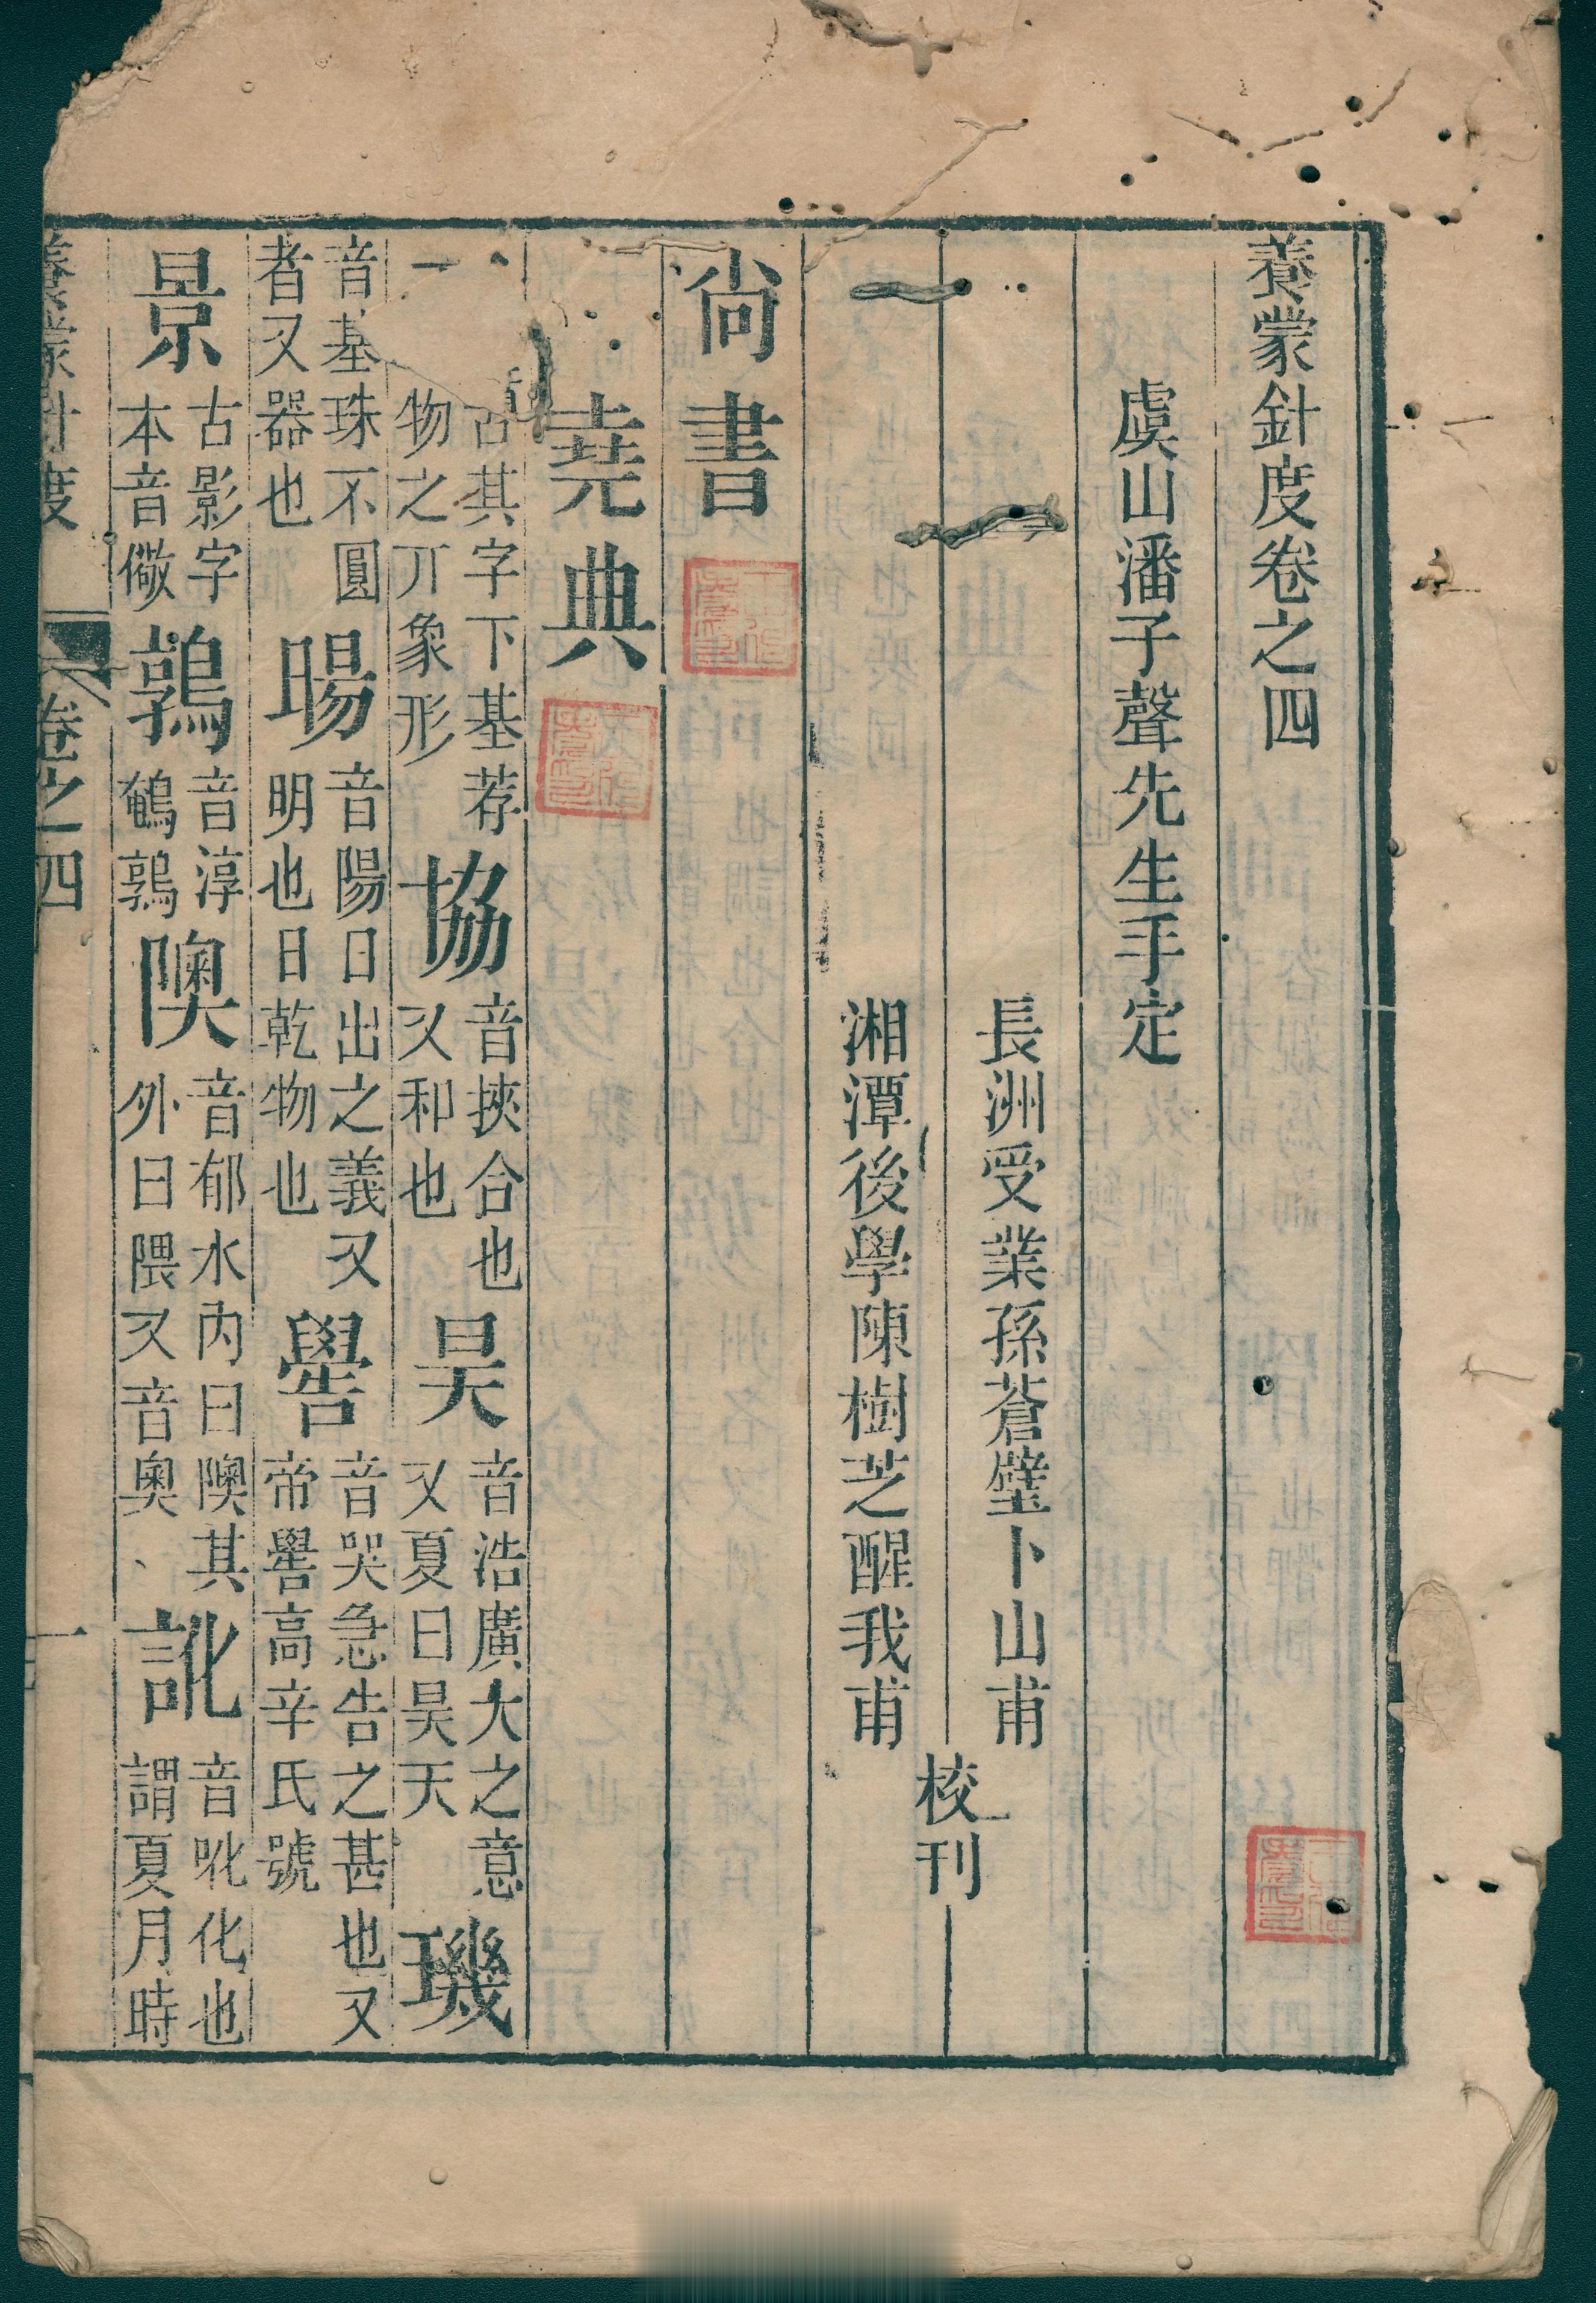 養蒙針度卷之四
虞山潘子聲先生手定
長洲受業孫蒼璧卜山甫
湘潭後學陳樹芝醒我甫
校刊
尙書
堯典
古其字下基荐
物之丌象形
協
音挾合也
又和也
昊
音浩廣大之意
又夏曰昊天
璣
音基珠不圓
者又器也
暘
音陽日出之義又
明也日乾物也
嚳
音哭急告之甚也又
帝嚳高辛氏號
景
古影字
本音儆
鶉
音淳
鵪鶉
隩
音郁水內曰隩其
外曰隈又音奧
訛
音吪化也
謂夏月時
養蒙針度
卷之四
一